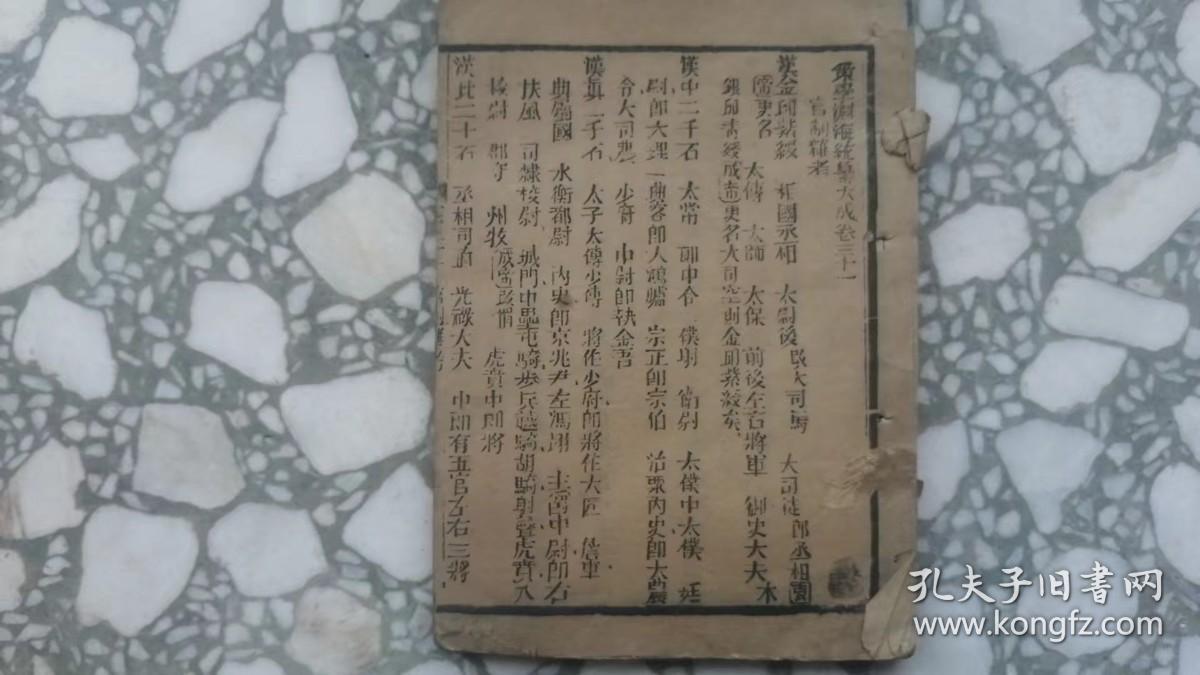 策學淵海統纂大成卷三十一
官制雜考
漢金印紫綬 相國丞相 太尉後改大司馬 大司徒即丞相
更名 太傅 太師 太保 前後左右將軍 御史大夫本
銀印青綬成帝更名大司空則金印紫綬矣
漢中二千石 太常 郎中令 僕射 衛尉 太僕中太僕 廷
尉即大理 典客即大鴻臚 宗正即宗伯 治粟內史即大農
令大司農 少府 中尉即執金吾
漢真二千石 太子太傅少傅 將作少府即將作大匠 詹事
典屬國 水衡都尉 內史即京兆尹左馮翊 主爵中尉即右
扶風 司隸校尉 城門中壘屯騎步兵越騎胡騎射聲虎賁八
校尉 郡守 州牧成帝改 虎賁中郎將
漢比二千石 丞相司直 光祿大夫 中郎有五官左右三將
孔夫子旧书网
www.kongfz.com